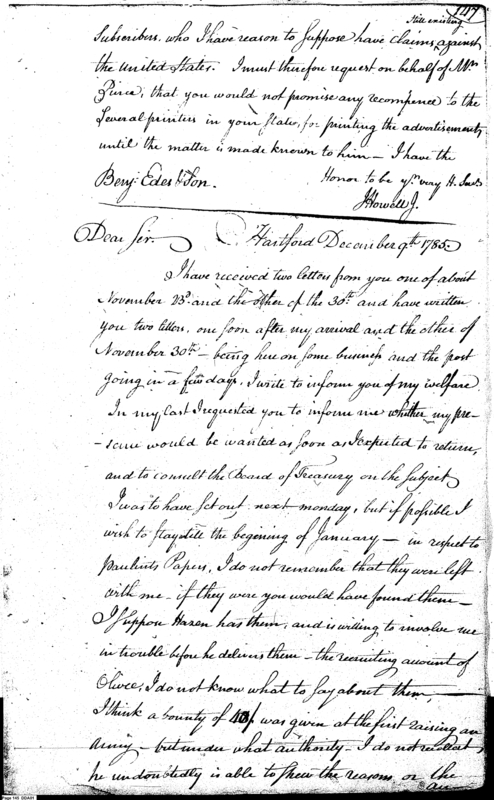 147
Still existing
Subscribers, who I have reason to suppose have claims against
the United States. I must therefore request on behalf of Mr.
Pierce, that you would not promise any recompence to the
several printers in your state, for printing the advertisements
until the matter is made known to him — I have the
Benj: Edes & Son. Honor to be yr. very H. Servt.
J Howell J.
Dear Sir. Hartford December 9th 1785.
I have received two letters from you one of about
November 23d. and the other of the 30th and have written
you two letters, one soon after my arrival and the other of
November 30th — being here on some business and the post
going in a few days, I write to inform you of my welfare
In my last I requested you to inform me whether my pre-
-sence would be wanted as soon as I expected to return,
and to consult the Board of Treasury on the subject
I was to have set out next monday, but if possible I
wish to stay till the begening of January — in respect to
Paulints Papers, I do not remember that they were left
with me — if they were you would have found them —
I suppose Hazen has them, and is willing to involve me
in trouble before he delivers them — the recruiting account of
Olivee, I do not know what to say about them —
I think a bounty of was given at the first raising an
army — but under what authority I do not recollect
he undoubtedly is able to shew the reasons or the
au
Page 145